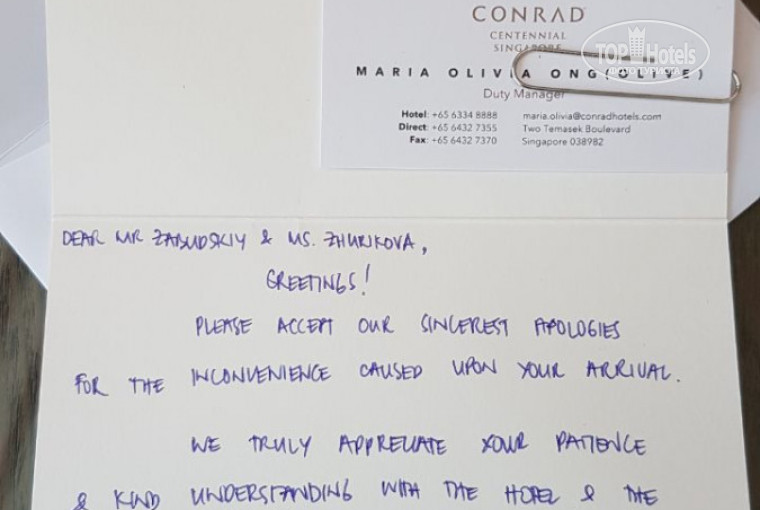 CONRAD
CENTENNIAL
SINGAPORE
MARIA OLIVIA ONG (OLIVE)
Duty Manager
Hotel: +65 6334 8888 maria.olivia@conradhotels.com
Direct: +65 6432 7355 Two Temasek Boulevard
Fax: +65 6432 7370 Singapore 038982
TOP Hotels
DEAR MR ZABUDSKIY & MS. ZHURIKOVA,
GREETINGS!
PLEASE ACCEPT OUR SINCEREST APOLOGIES
FOR THE INCONVENIENCE CAUSED UPON YOUR ARRIVAL.
WE TRULY APPRECIATE YOUR PATIENCE
& KIND UNDERSTANDING WITH THE HOTEL & THE